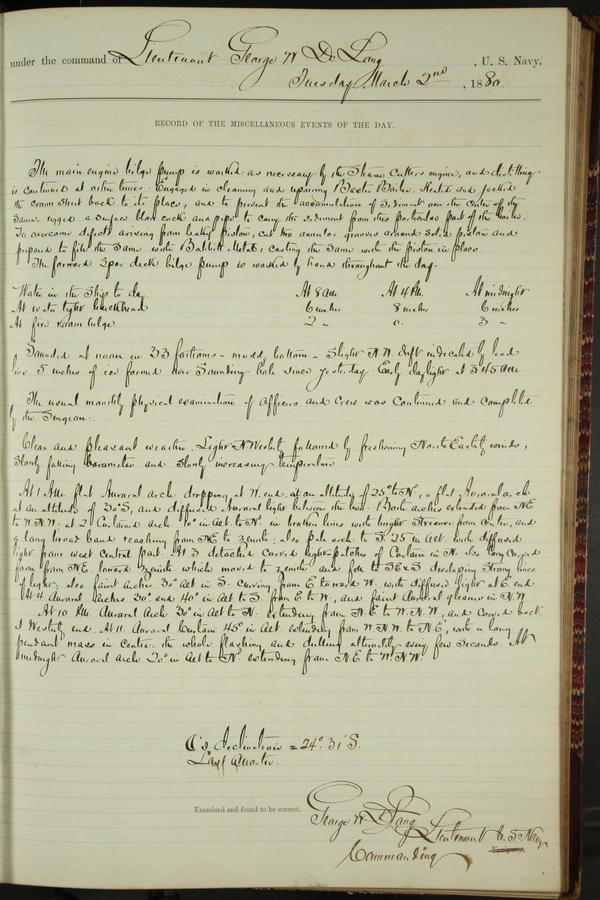 under the command of Lieutenant George W De Long, U. S. Navy,
Tuesday March 2nd, 1880.
RECORD OF THE MISCELLANEOUS EVENTS OF THE DAY.
The main engine bilge pump is worked as necessary by the Steam Cutters engine, and distilling
is continued at other times. Engaged in cleaning and repairing Baxter Boiler. Riveted and
the crown sheet back to its place, and to prevent the accumulation of sediment over the centre of the
same, rigged a surface blow cock and pipe to carry the sediment from this particular part of the boiler.
To overcome defects arising from leaky piston, cut two annular grooves around solid piston and
prepared to fill the same with Babbitt Metal, casting the same with the piston in place.
The forward Spar deck bilge pump is worked by hand throughout the day.
Water in the Ship to day At 8 AM. At 4 PM. At midnight
At water tight bulkhead 6 inches 8 inches 6 inches
At fire room bilge 2 " 0. 3 "
Sounded at noon in 33 fathoms - muddy bottom - Slight N.W. drift indicated by lead
line. 5 inches of ice formed over Sounding hole since yesterday. Early daylight at 3.45 AM
The usual monthly physical examination of Officers and Crew was continued and completed
by the Surgeon.
Clear and pleasant weather. Light N. Westerly followed by freshening North Easterly winds,
Slowly falling barometer and slowly increasing temperature
At 1 AM. flat Auroral arch dropping at W. end at an altitude of 25° to N, a flat Auroral arch
at an altitude of 30° S, and diffused Auroral light between the two. Both arches extended from NE
to W.N.W. at 2 Curtained arch 10° in Alt to N. in broken lines with bright Streamer from centre, and
a long broad band reaching from NE to zenith; also pale arch to S. 25° in Alt. with diffused
light from west central part. At 3 detached curved light patches of Curtain in N. also long curved
form from NE toward zenith which moved to zenith and fell to SE & S developing strong lines
of light; also faint arches 30° Alt in S. curving from E toward W. with diffused light at E. end
At 4 Auroral arches 30° and 40° in Alt to S. from E to W, and faint Auroral gleams in N.W
At 10 PM. Auroral Arch 30° in Alt to N. extending from N.E to W.N.W, and curved back
at Westerly end. At 11 Auroral Curtain 45° in Alt. extending from W.N.W. to N.E, with a long
pendant mass in centre, the whole flashing and dulling alternately every few Seconds. At
midnight Auroral arch 20° in Alt to N. extending from N.E to W.N.W.
☾'s declination = 24°. 31' S.
Last Quarter.
Examined and found to be correct.
George W De Long Lieutenant U. S. Navy
Commanding